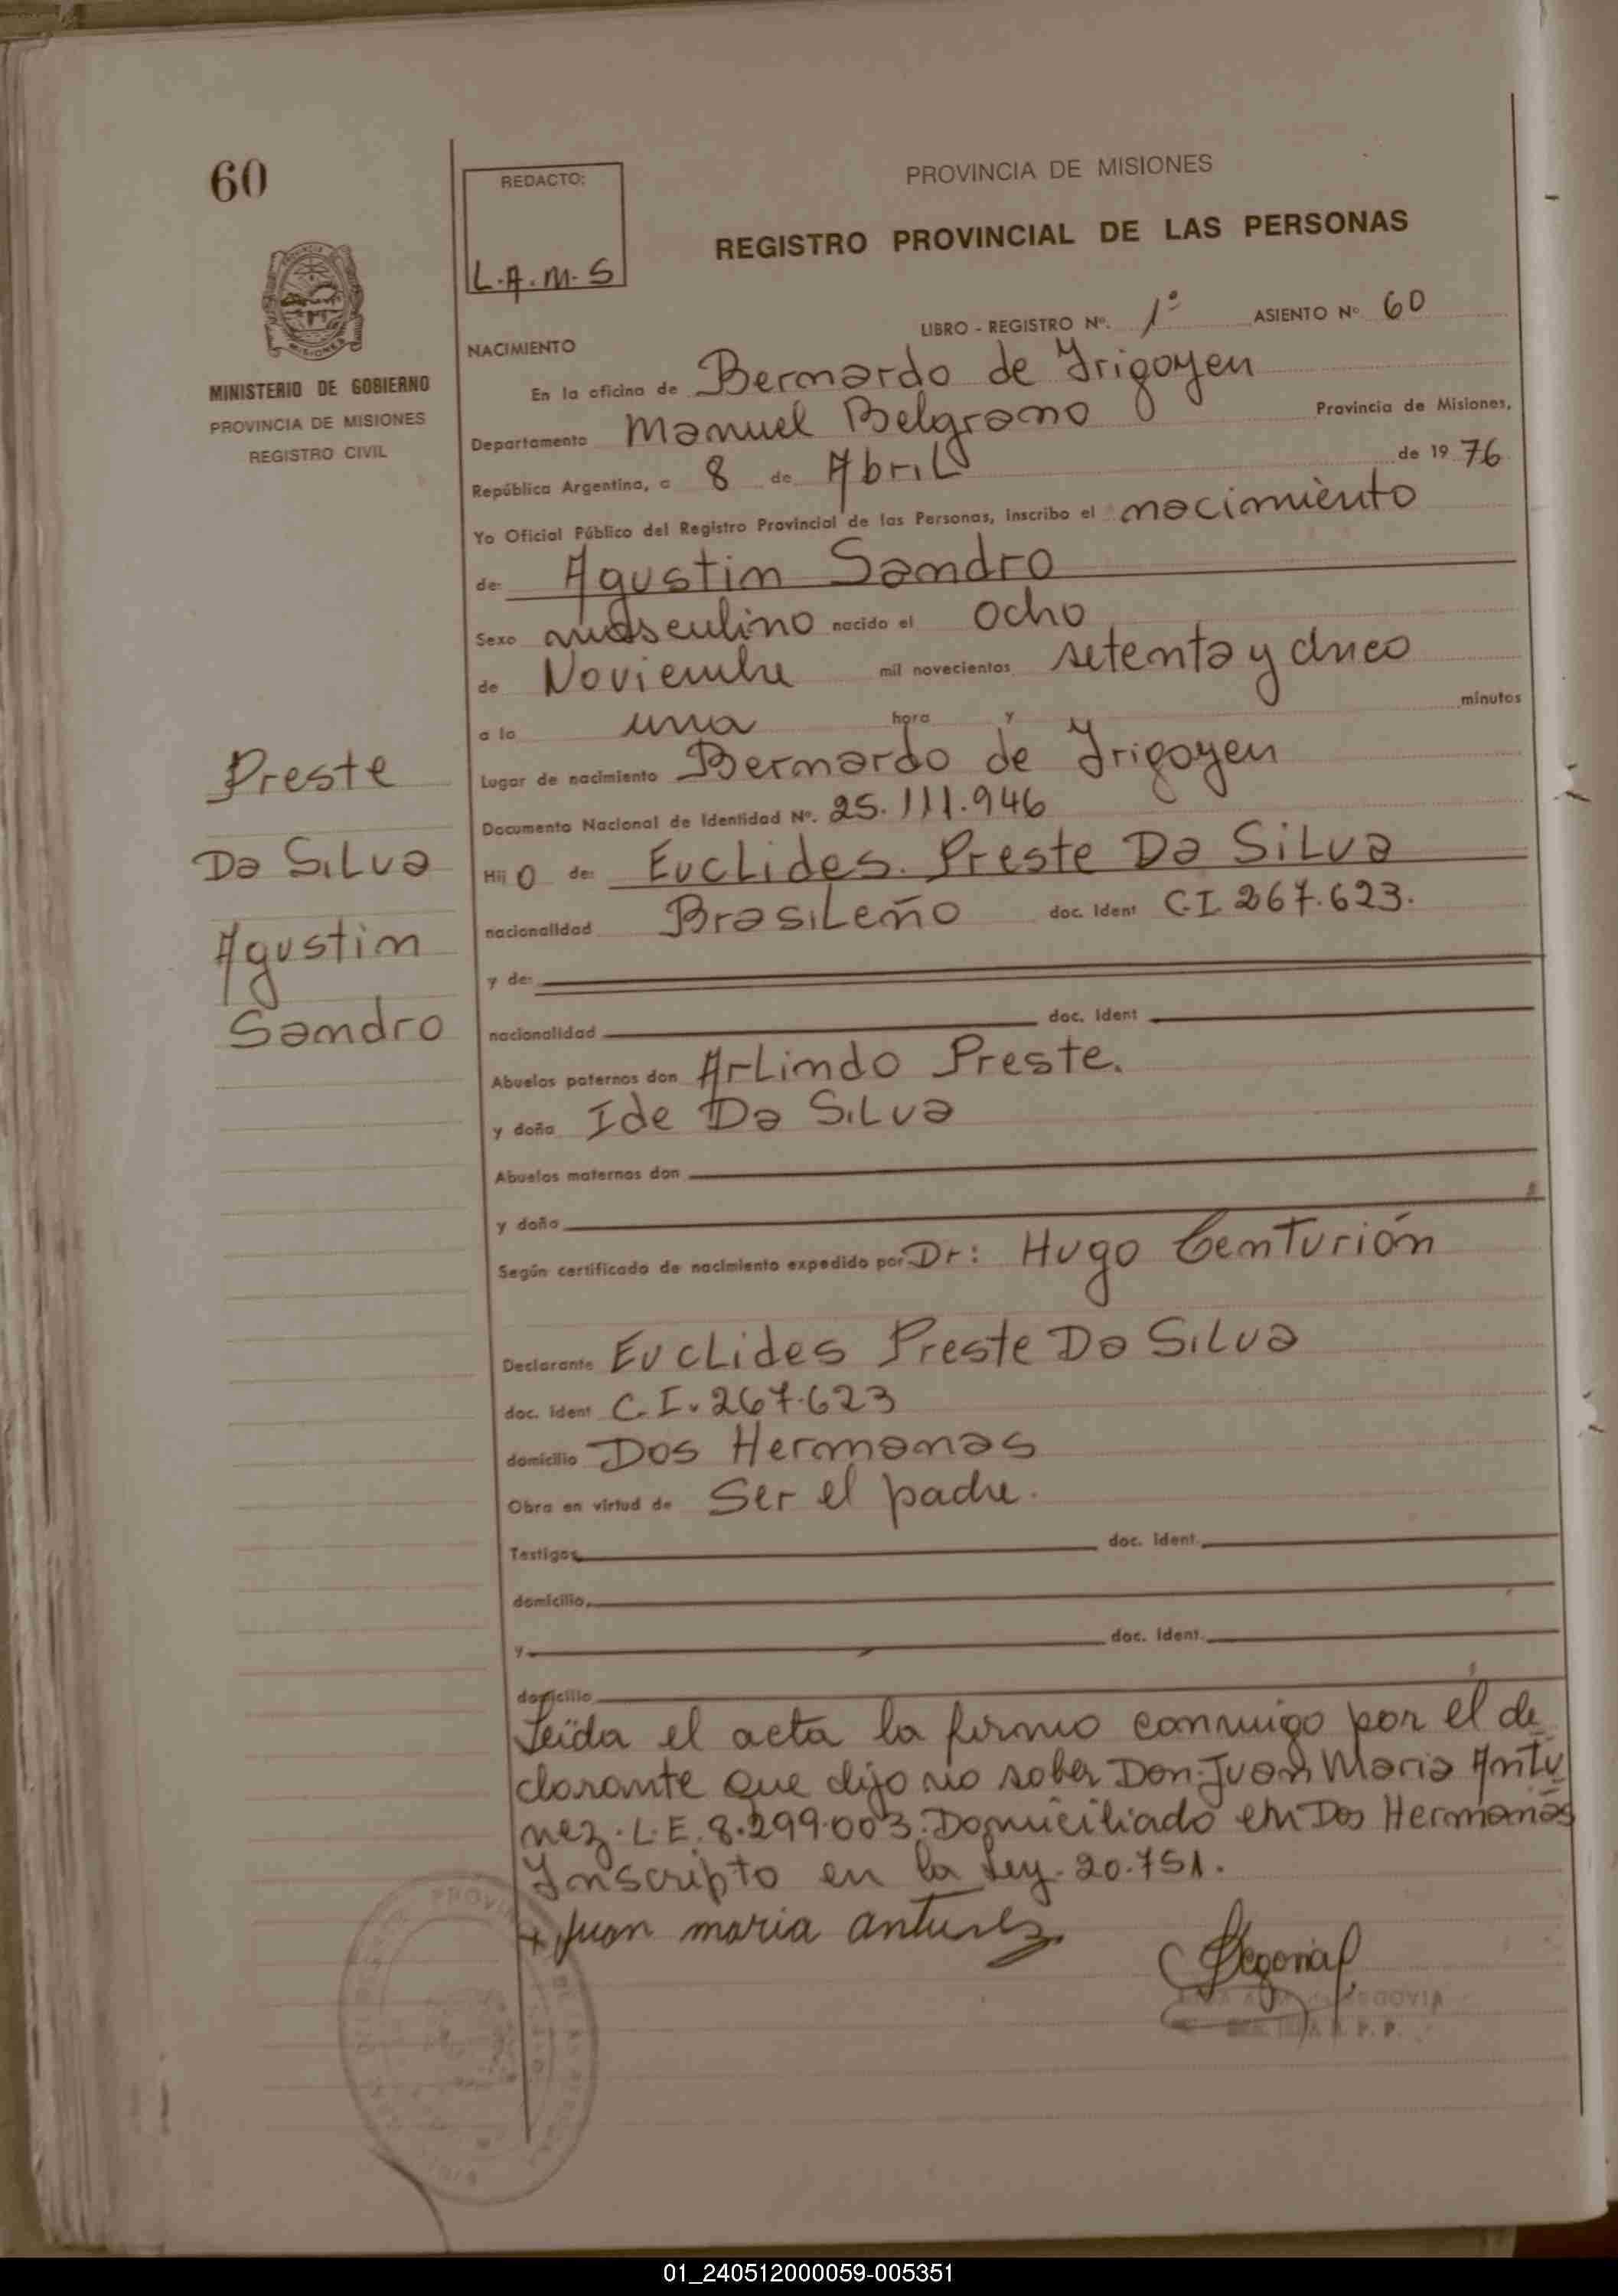 60
REDACTO:
L.A.M.S
PROVINCIA DE MISIONES
REGISTRO PROVINCIAL DE LAS PERSONAS
MISIONES
MINISTERIO DE GOBIERNO
PROVINCIA DE MISIONES
REGISTRO CIVIL
LIBRO - REGISTRO Nº. 1º ASIENTO Nº 60
NACIMIENTO
En la oficina de Bernardo de Irigoyen
Departamento Manuel Belgrano Provincia de Misiones,
República Argentina, a 8 de Abril de 19 76
Yo Oficial Público del Registro Provincial de las Personas, inscribo el nacimiento
de: Agustin Sandro
Sexo masculino nacido el ocho
de Noviembre mil novecientos setenta y cinco
a la una hora y minutos
Lugar de nacimiento Bernardo de Irigoyen
Documento Nacional de Identidad Nº. 25.111.946
Hij o de: Euclides. Preste Da Silva
nacionalidad Brasileño doc. Ident C.I. 267.623.
y de:
nacionalidad doc. Ident
Abuelos paternos don Arlindo Preste.
y doña Ide Da Silva
Abuelos maternos don
y doña
Según certificado de nacimiento expedido por Dr: Hugo Centurión
Declarante Euclides Preste Da Silva
doc. ident C.I. 267.623
domicilio Dos Hermanas
Obra en virtud de Ser el padre.
Testigos doc. Ident.
domicilio
y doc. Ident.
domicilio
Leída el acta la firma conmigo por el de
clarante que dijo no saber Don Juan Maria Antu
nez. L.E. 8.299.003. Domiciliado en Dos Hermanas
Inscripto en la Ley. 20.751.
+ Juan maria antunez
Preste
Da Silva
Agustin
Sandro
SEGOVIA
01_240512000059-005351